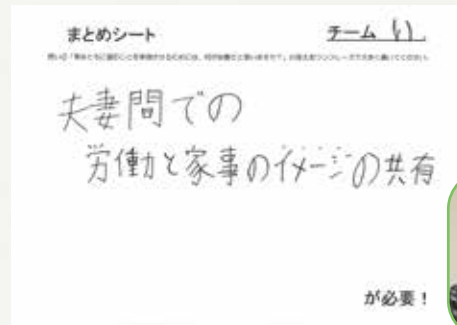 まとめシート
チーム い
夫妻間での
労働と家事のイメージの共有
が必要！